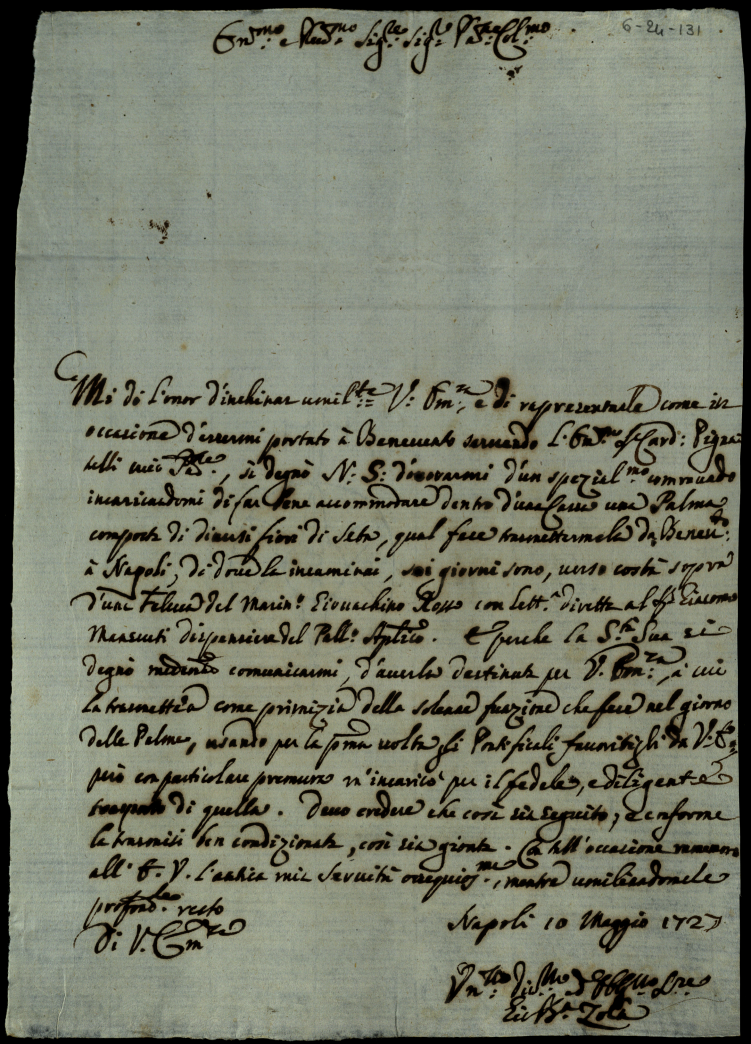 6-24-131
Em.mo e Rev.mo Sig.re Sig.re P.rone Col.mo
Mi dò l'onor d'inchinar umil.te V: Em.za, e di rapresentarle come in
occasione d'essermi portato à Benevento servendo l'Em.mo S.r Card: Pigna
telli mio P.rone, si degnò N. S: d'onorarmi d'un spezial.mo commando
incaricandomi di far bene accommodare dentro d'una Cassa una Palma
composta di diversi fiori di Seta, qual fece trasmettermela da Benev.to
à Napoli, di dove la incaminai, sei giorni sono, verso costà sopra
d'una Feluca del Marin.o Giovachino Rosso con lett.a diretta al S.r Giacomo
Mansueti dispensiere del Pall.o Aplico. E perche la S.tà Sua si
degnò comunicarmi, d'averla destinata per V. Em.za, à cui
la trasmetteva come primizia della solenne funzione che fece nel giorno
delle Palme, usando per la prima volta gli Pontificali favoritigli da V. E.
però con particolare premura m'incaricò per il fedele, e diligente
trasporto di quella. Devo credere che così sia seguito, e conforme
la trasmisi ben condizionata, così sia gionta. Con tall'occasione rammemoro
all' E. V. l'antica mia servitù ossequios.ma, mentre umiliandomele
profond.te resto
Di V. Em.za
Napoli 10 Maggio 1727
Um.mo Div.mo ed Obbl.mo S.re
Gio B.a